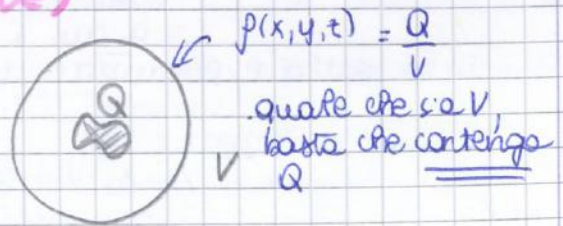 ρ(x,y,z) = Q/V
Q
quale che sia V,
basta che contenga
V
Q